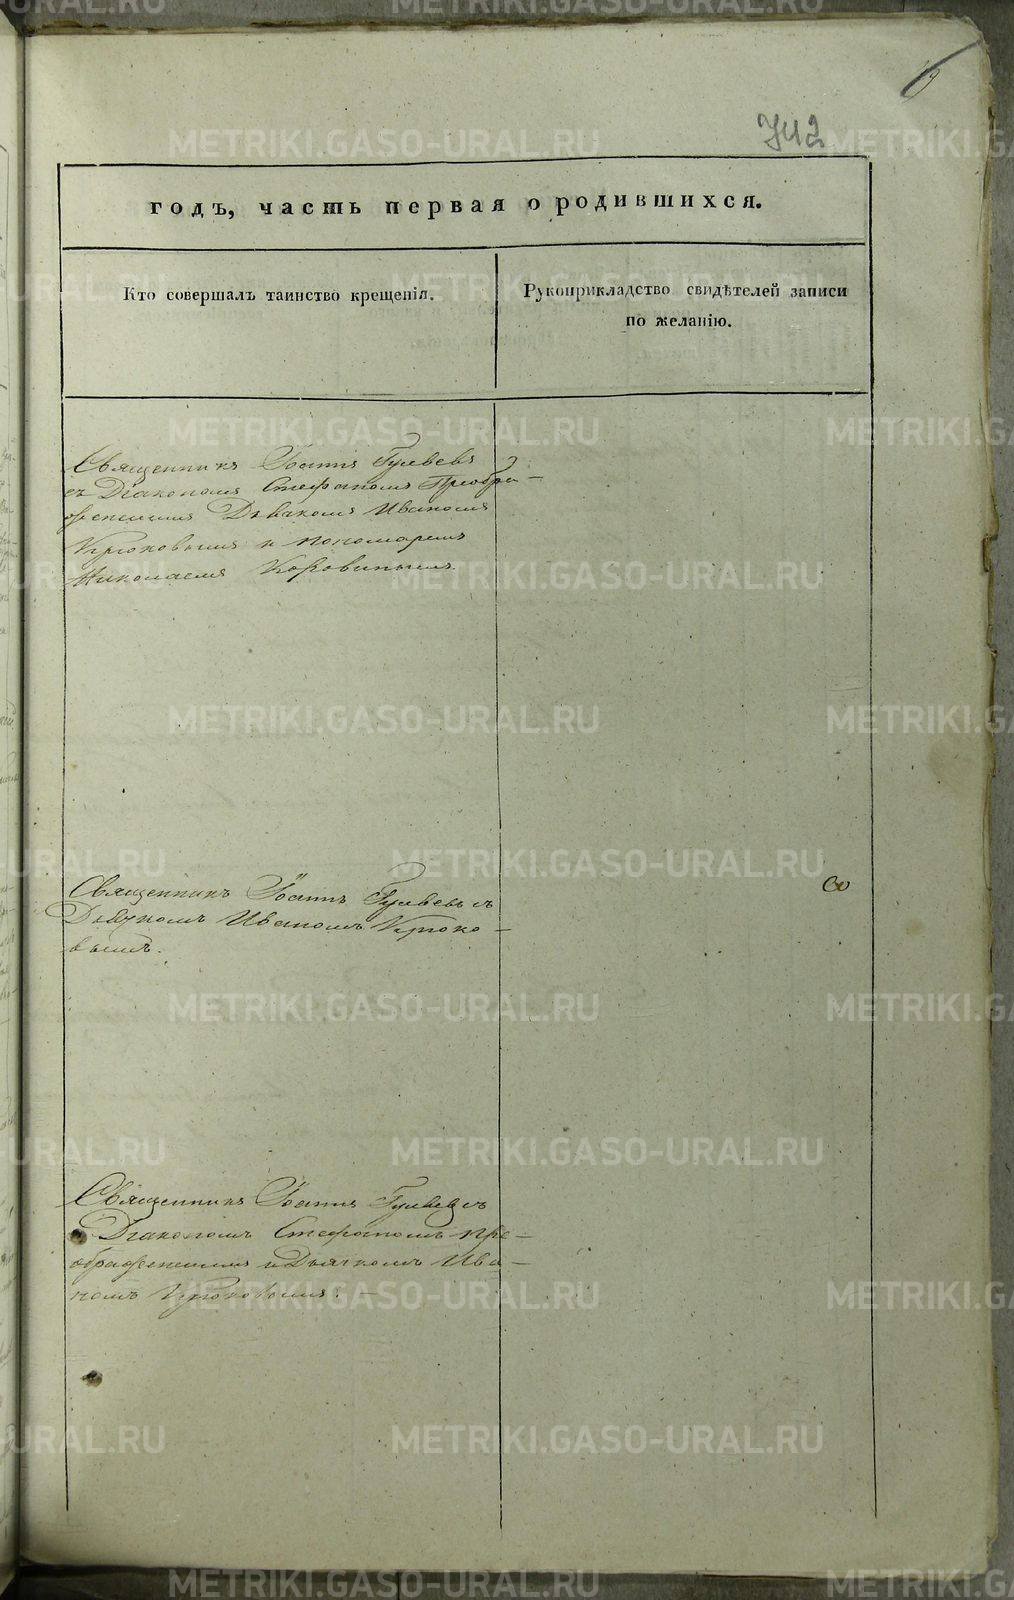 6
742
годъ, часть первая о родившихся.
Кто совершалъ таинство крещенія.
Рукоприкладство свидѣтелей записи
по желанію.
Священникъ Іоаннъ Гуляевъ
съ Діакономъ Стефаномъ Преобра-
женскимъ Дьячкомъ Иваномъ
Крюковымъ и пономаремъ
Николаемъ Коровинымъ.
Священникъ Іоаннъ Гуляевъ съ
Дьячкомъ Иваномъ Крюко-
вымъ.
Священникъ Іоаннъ Гуляевъ съ
Діакономъ Стефаномъ Пре-
ображенскимъ и Дьячкомъ Ива-
номъ Крюковымъ.
METRIKI.GASO-URAL.RU